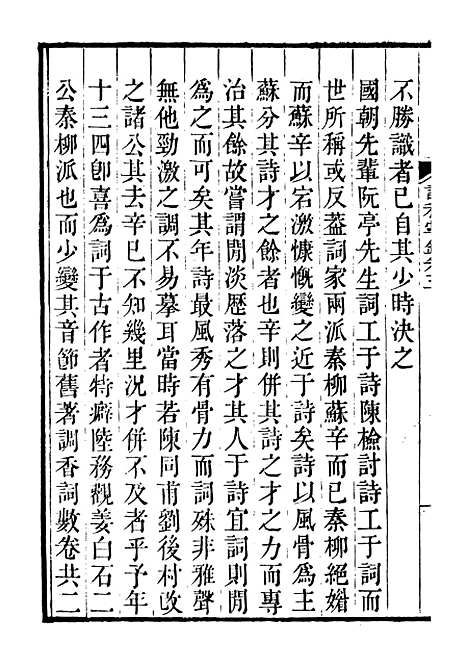 不勝識者已自其少時決之
國朝先輩阮亭先生詞工于詩陳檢討詩工于詞而
世所稱或反葢詞家兩派秦柳蘇辛而已秦柳絕婣
而蘇辛以宕激慷慨變之近于詩矣詩以風骨爲主
蘇分其詩才之餘者也辛則併其詩之才之力而專
治其餘故嘗謂閒淡歷落之才其人于詩宜詞則閒
爲之而可矣其年詩最風秀有骨力而詞殊非雅聲
無他勁激之調不易摹耳當時若陳同甫劉後村改
之諸公其去辛巳不知幾里况才併不及者乎予年
十三四卽喜爲詞于古作者特癖陸務觀姜白石二
公秦柳派也而少變其音節舊著調香詞數卷共二